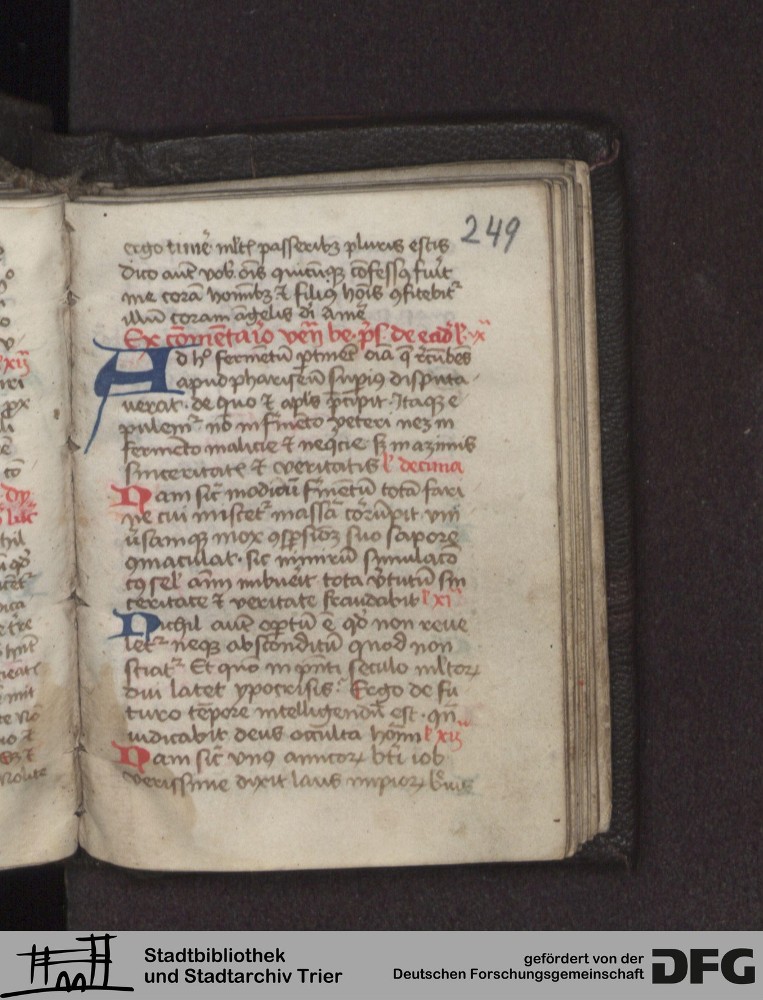 249
ergo timē mlt̄ passeribꝫ pluris estis
Dico aut̄ vob̄ oīs quicūqꝫ cōfessꝯ fuīt
me corā hominibꝫ ⁊ filiꝯ hoīs ꝯfitebit᷑
illū coram āgelis di amē
Ex cōmentario ven̄ be. p̄s. de eiōd̄ l. x
Ad hͦ fermētū ꝑtinēt oīa q̄ rēcūbēs
apud phariseū supiꝯ disputa
uerat. de quo ⁊ apl̄s p̄cipit. Itaqꝫ e
pulem᷑ nō in f̄mēto veteri neqꝫ in
fermēto malicie ⁊ neqcie sꝫ in azimis
sinceritatꝭ ⁊ veritatis l̄ decima
Nam sic̄ modicū f̄mētū totā fari
ne cui miscet᷑ massā cōrūpit vni
ūsamqꝫ mox ꝯspsionē suo sapore
ꝯmaculat. sic nimirū simulacō
cꝯ sel̄ aīm imbuēit tota v̄tutū sin
ceritate ⁊ veritate fraudabit l̄ xi
Nichil aut̄ optū ē qͦd non reue
let᷑ neqꝫ absconditū quod non
sciat᷑ Et quō in p̄nti seculo mltoꝝ
oui latet ypocrisis? Ergo de fu
turo tēpore intelligendū est. qn̄
iudicabit deus occulta hōīm l̄ xii
Nam sic̄ vnꝯ amicoꝝ bti iob
verissime dixit laus impioꝝ b̄uis
Stadtbibliothek
und Stadtarchiv Trier
gefördert von der
Deutschen Forschungsgemeinschaft
DFG